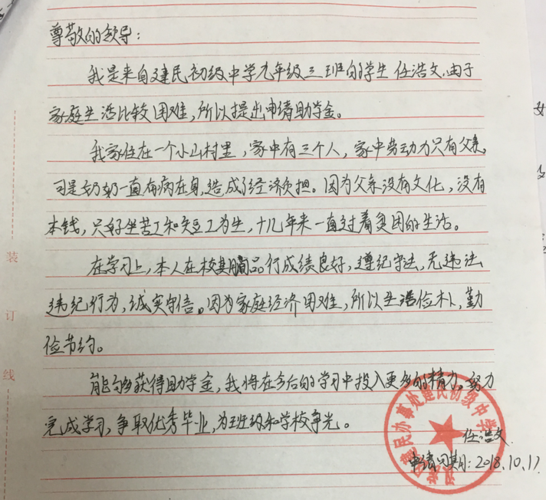 尊敬的领导:
我是来自建民初级中学九年级三班的学生任浩文,由于
家庭生活比较困难,所以提出申请助学金。
我家住在一个小山村里,家中有三个人,家中劳动力只有父亲,
可是奶奶一直有病在身,造成了经济负担。因为父亲没有文化,没有
本钱,只好坐苦工和交工为生,十几年来一直过着贫困的生活。
在学习上,本人在校其间品行成绩良好,遵纪守法,无违法
违纪行为,诚实守信。因为家庭经济困难,所以生活俭朴,勤
俭节约。
能够获得助学金,我将在今后的学习中投入更多的精力。努力
完成学习,争取优秀毕业,为班级和学校争光。
任浩文
申请日期:2018.10.17
建民办事处建民初级中学
装
订
线
女